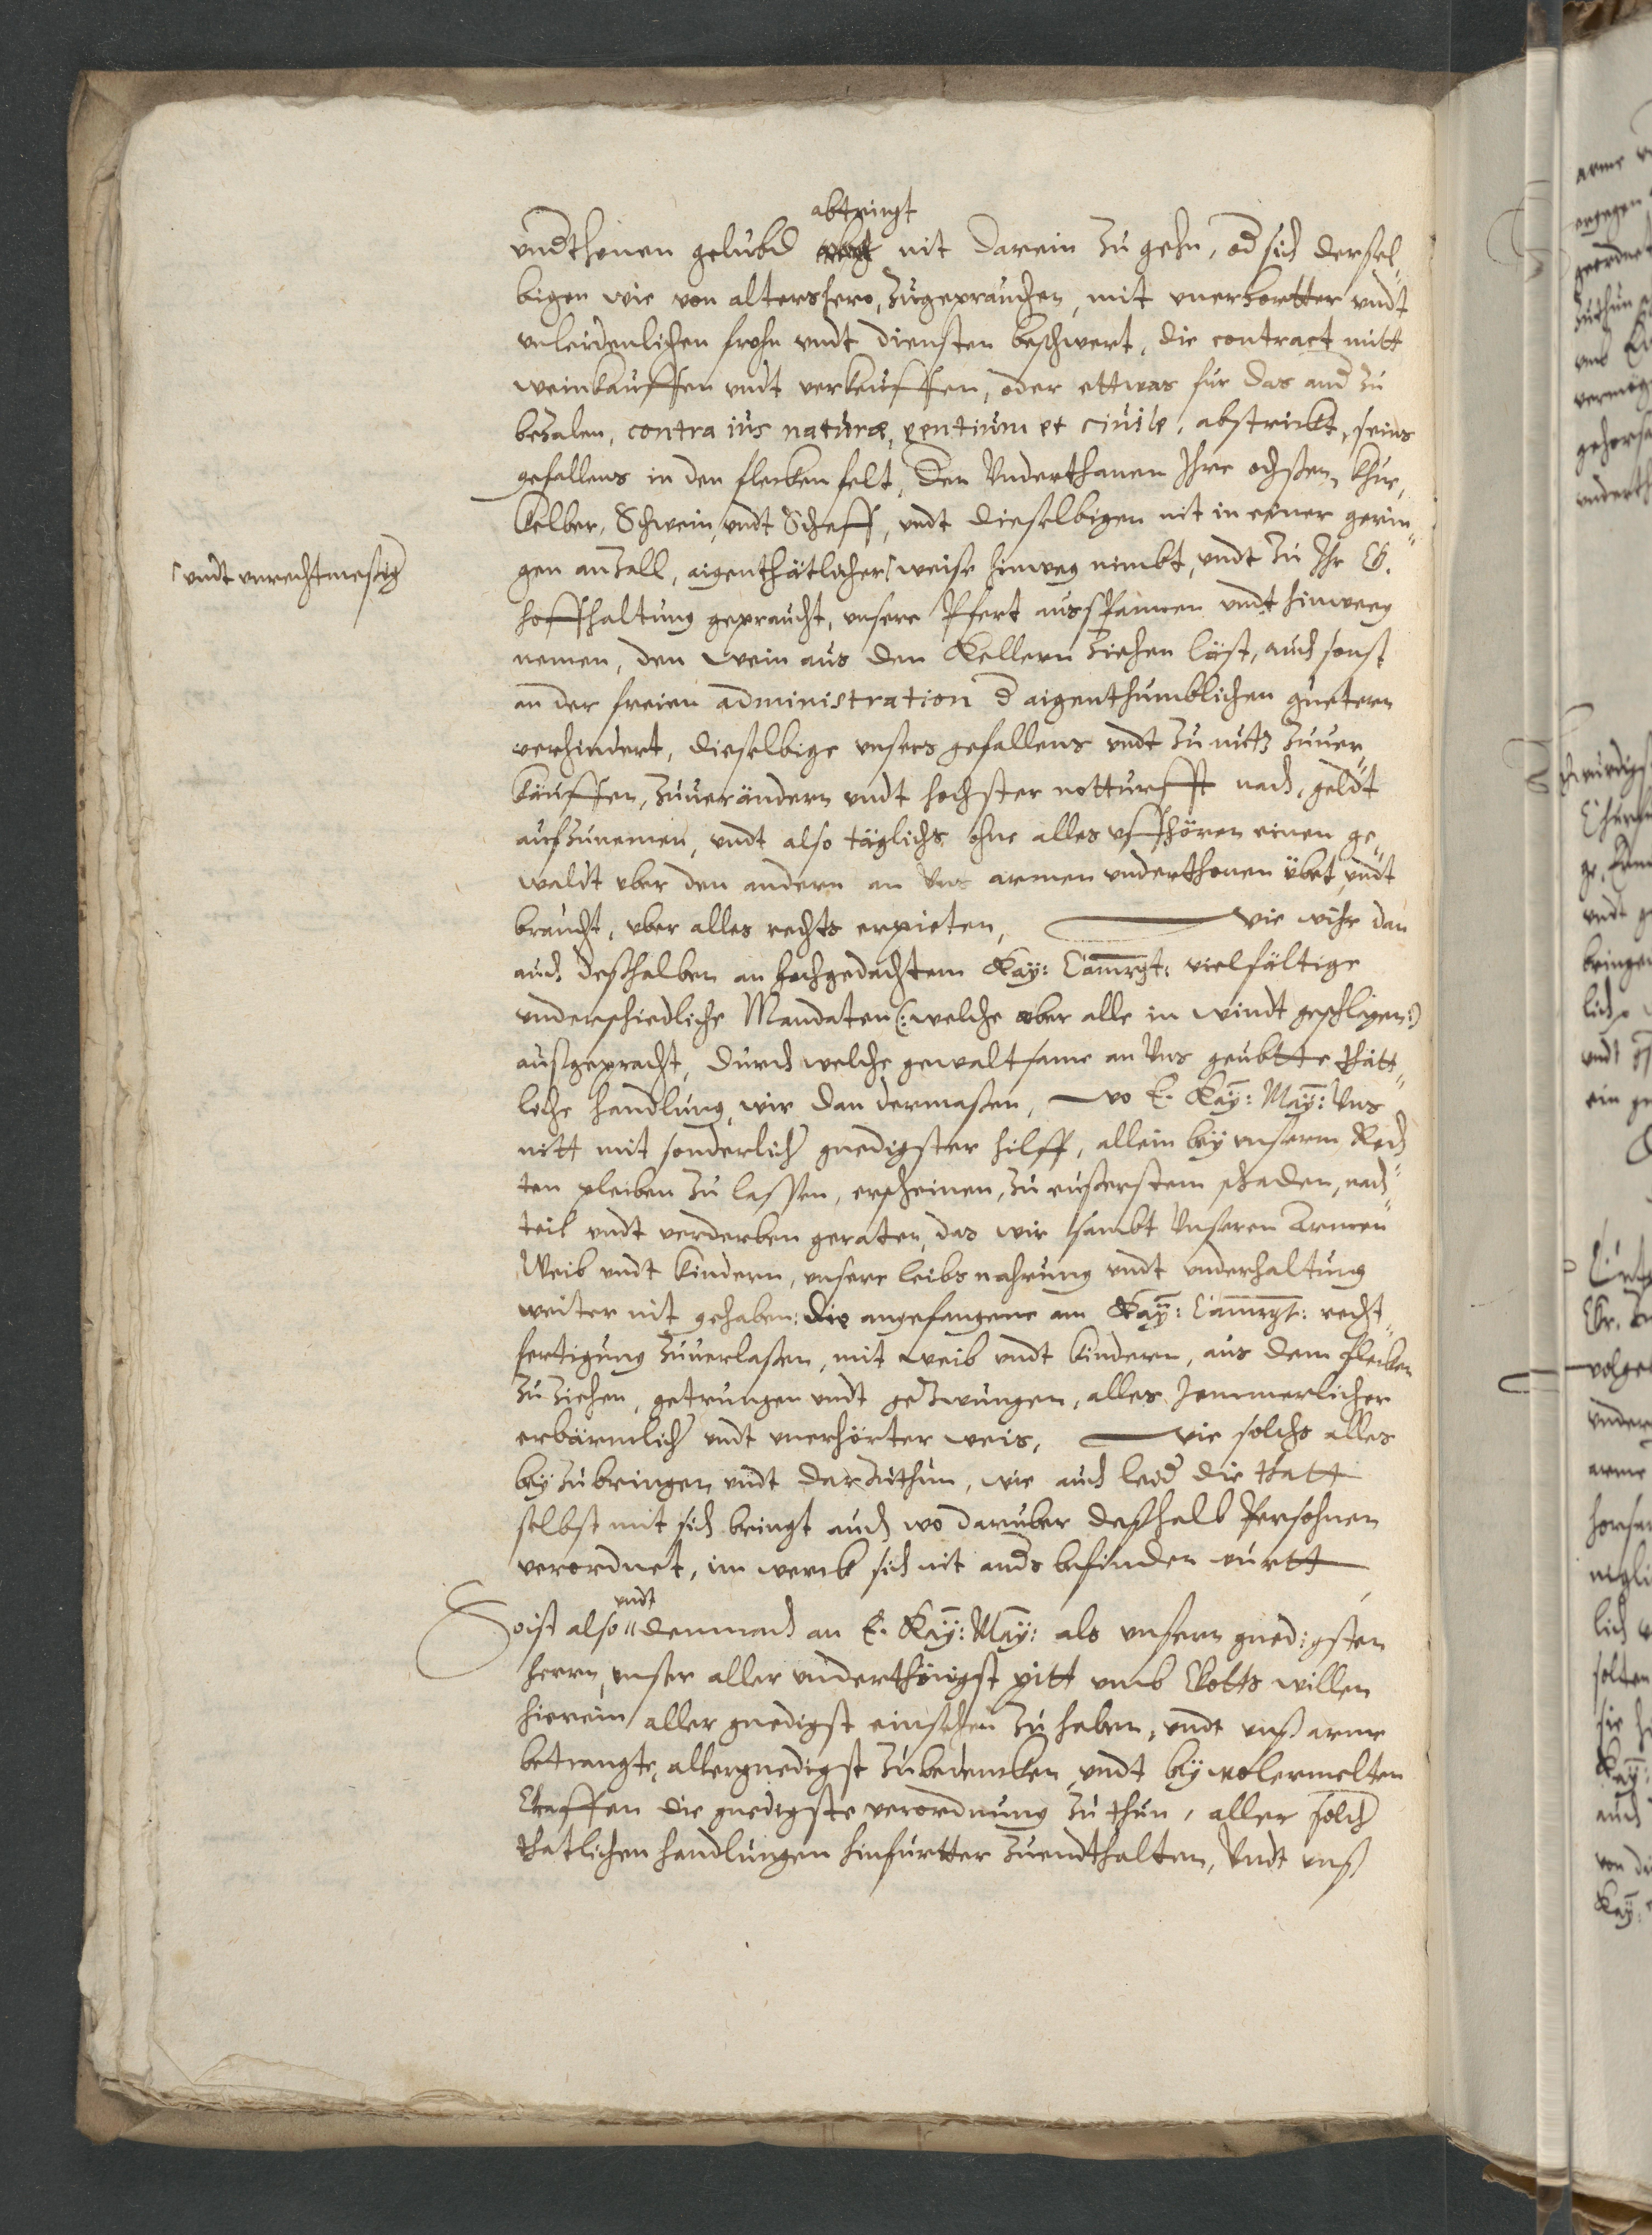 abtringt
vndthonen gelubd nit darein zu gehn, od sich dersel„
bigen wie von altershero, zugeprauchen, mit vnerhortter vndt
vnleidenlichen frohn vndt diensten beschwert, die contract mitt
weinkauffen vndt verkauffen, oder ettwas fur das and zu
bezalen, contra ius naturæ, gentium et ciuile, abstrickt, seins
gefallens in den flecken felt, den Vnderthanen Ihre ochsen, khue,
kelber, Schwein, vndt Schaff, vndt dieselbigen nit in einer gerin„
gen anzall, aigenthätlicher weise hinweg nimbt, vndt zu Ihr G.
vndt vnrechtmesig
hoffhaltung gepraucht, vnsere Pfert ausspannen vndt hinweg
nemen, den wein aus den Kellern ziehen läst, auch sonst
an der freien administration d aigenthumblichen guetern
verhindert, dieselbige vnsers gefallens vndt zu nutz zuuer„
kauffen, zuuerändern vndt hochster notturfft nach, geldt
aufzunemen, vndt also täglichs ohne alles vffhören einen ge„
waldt vber den andern an Vns armen vnderthonen übet vndt
braucht, vber alles rechts erpieten, wie wihr dan
auch deshalben an hochgedachtem Kay: Camrgt: vielfältige
vnderschiedliche Mandaten (: welche aber alle in windt geschlagen :)
außgepracht, durch welche gewaltsame an Vns geubtte thätt„
liche handlung, wir dan dermaßen, wo E. Kay: May: Vns
nitt mit sonderlicher gnedigster hilff, allein bey vnserm Rech„
ten pleiben zu lassen, erscheinen, zu eußerstem schaden, nach„
teil vndt verderben geraten, das wir sambt Vnseren Armen
Weib vndt kindern, vnsere leibs nahrung vndt vnderhaltung
weiter nit gehaben: die angefangene am Kay: Camrgt: recht„
fertigung zuuerlaßen, mit weib vndt kindern, aus dem flecken
zu ziehen, getrungen vndt gezwungen, alles Jemmerlicher
erbärmlicher vndt vnerhörter weis, wie solchs alles
bey zubringen vndt darzuthun, wie auch leid die thatt
selbst mit sich bringt auch wo daruber deßhalb Persohnen
verordnet, im werck sich nit anders befinden wurtt
vndt
So ist also demnach an E. Kay: May: als vnsern gnedigsten
herrn, vnser aller vnderthönigst pitt vmb Gotts willen
hierein aller gnedigst einsehen zu haben, vndt vnß arme
betrangte, allergnedigst zubedencken vndt bey wolermelten
Graffen die gnedigste verordnung zu thun, aller solch
thatlichen handlungen hinfurtter zuendthalten, Vndt vnß